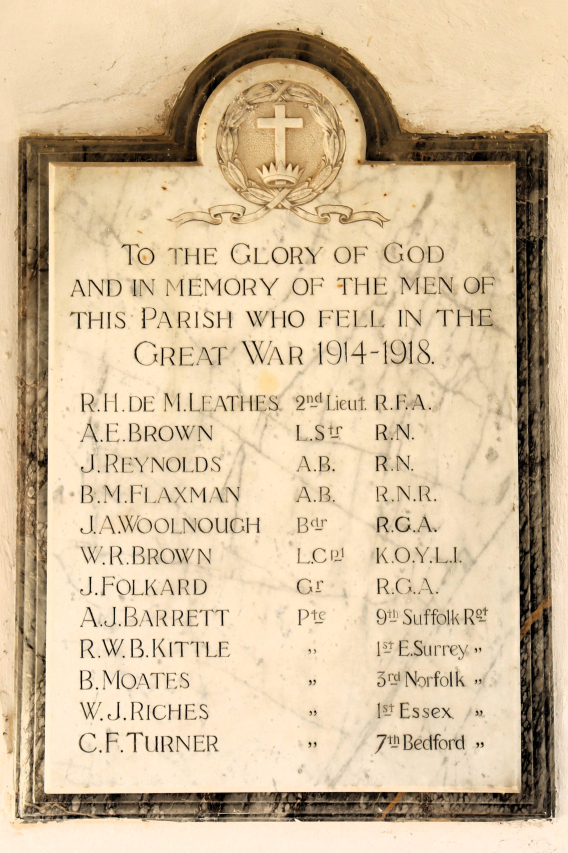 To the Glory of God
and in memory of the men of
this Parish who fell in the
Great War 1914-1918.
R.H. de M. Leathes 2nd Lieut. R.F.A.
A.E. Brown L.Str R.N.
J. Reynolds A.B. R.N.
B.M. Flaxman A.B. R.N.R.
J.A. Woolnough Bdr R.G.A.
W.R. Brown L.Cpl K.O.Y.L.I.
J. Folkard Gr R.G.A.
A.J. Barrett Pte 9th Suffolk Rgt
R.W.B. Kittle „ 1st E. Surrey „
B. Moates „ 3rd Norfolk „
W.J. Riches „ 1st Essex „
C.F. Turner „ 7th Bedford „